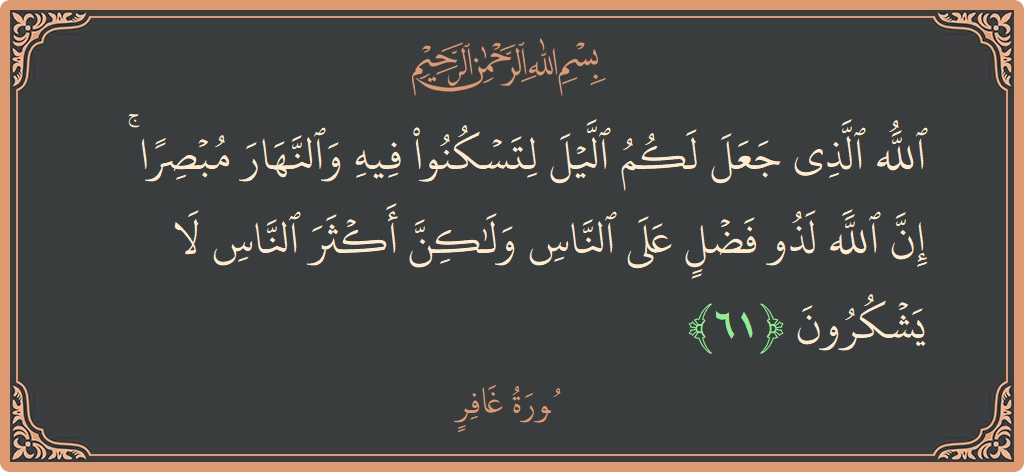 بِسْمِ اللهِ الرَّحْمٰنِ الرَّحِيْمِ
ٱللَّهُ ٱلَّذِى جَعَلَ لَكُمُ ٱلَّيْلَ لِتَسْكُنُوا۟ فِيهِ وَٱلنَّهَارَ مُبْصِرًا ۚ
إِنَّ ٱللَّهَ لَذُو فَضْلٍ عَلَى ٱلنَّاسِ وَلَـٰكِنَّ أَكْثَرَ ٱلنَّاسِ لَا
يَشْكُرُونَ ﴿٦١﴾
سُورَةُ غَافِرٍ